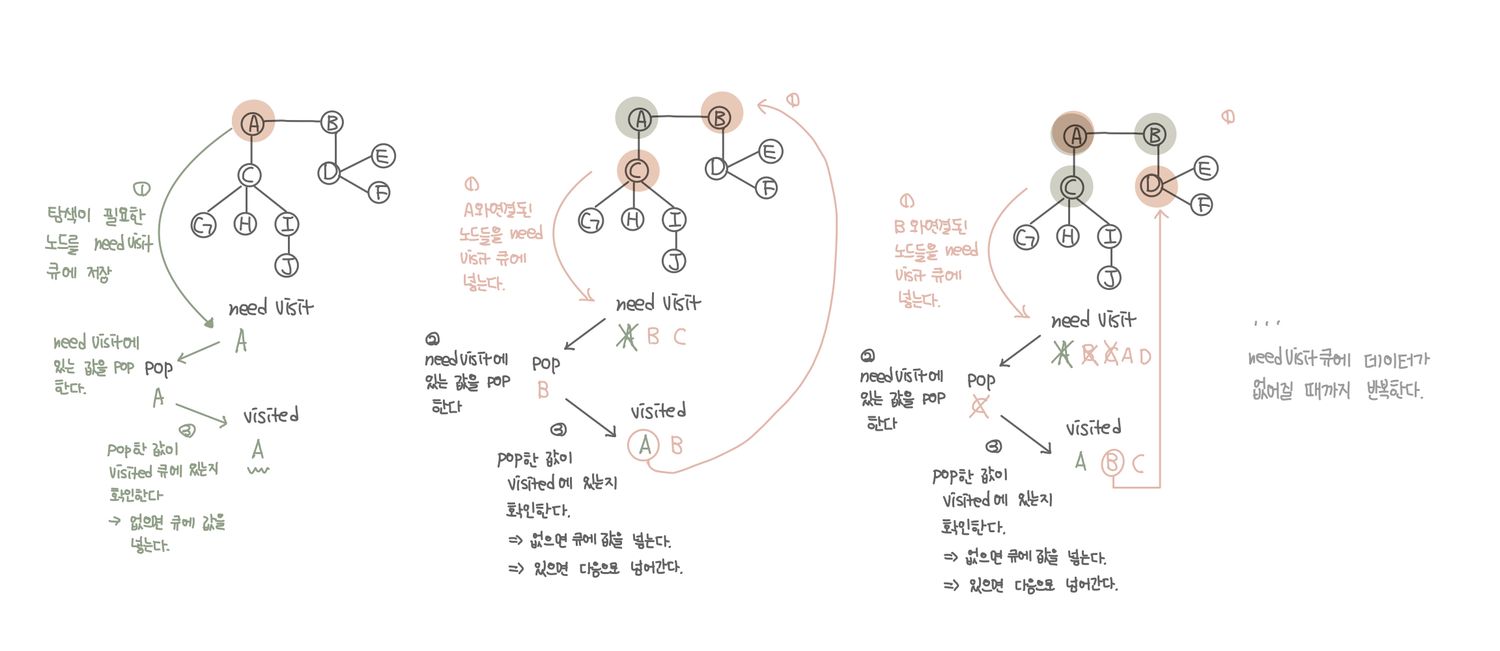 A B
C D E F
G H I
J
①
탐색이 필요한
노드를 need visit
큐에 저장
need visit
A
need visit에
있는 값을 POP
한다.
POP
A
visited
A
③
POP한 값이
visited 큐에 있는지
확인한다
→ 없으면 큐에 값을
넣는다.
①
A B
C D E F
G H I
J
①
A와연결된
노드들을 need
visit 큐에
넣는다.
need visit
A B C
②
need visit에
있는 값을 POP
한다
POP
B
visited
A B
③
POP한 값이
visited에 있는지
확인한다.
=> 없으면 큐에 값을 넣는다.
=> 있으면 다음으로 넘어간다.
①
A B
C D E F
G H I
J
①
B와연결된
노드들을 need
visit 큐에
넣는다.
need visit
A B C A D
②
need visit에
있는 값을 POP
한다
POP
C
visited
A B C
③
POP한 값이
visited에 있는지
확인한다.
=> 없으면 큐에 값을 넣는다.
=> 있으면 다음으로 넘어간다.
...
need visit 큐에 데이터가
없어질 때까지 반복한다.